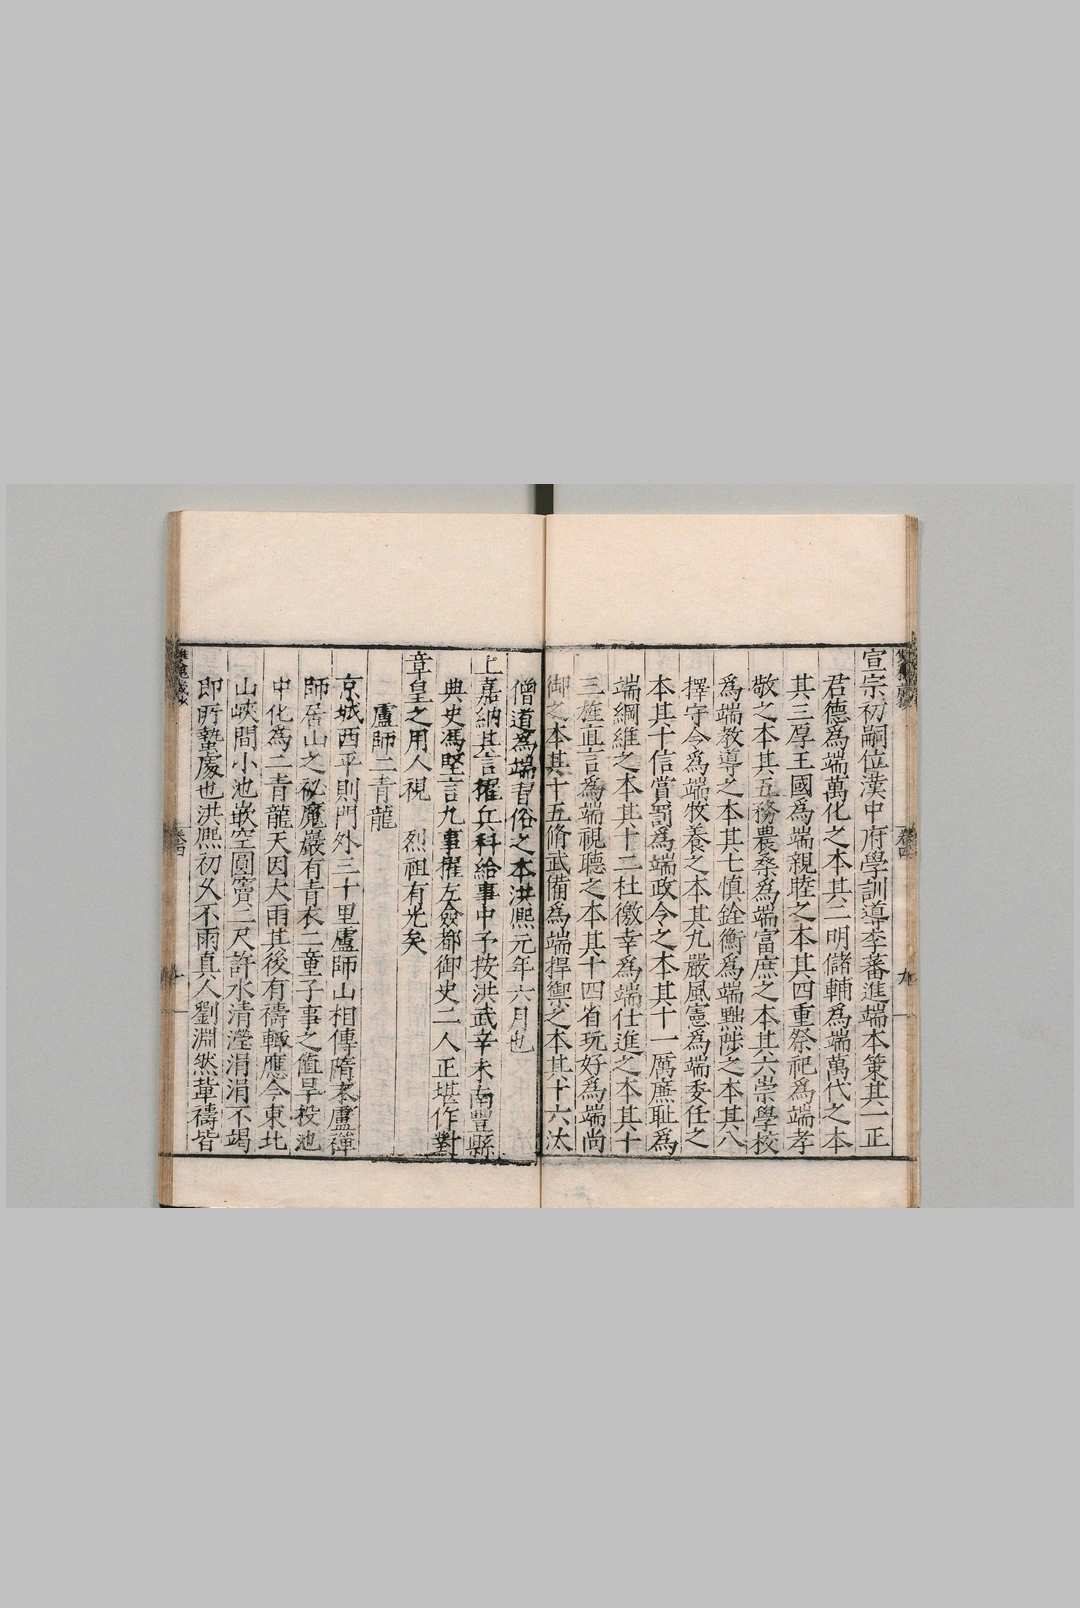 宣宗初嗣位漢中府學訓導李蕃進端本策其一正
君德為端萬化之本其二明儲輔為端萬代之本
其三厚王國為端親睦之本其四重祭祀為端孝
敬之本其五務農桑為端富庶之本其六崇學校
為端教導之本其七慎銓衡為端黜陟之本其八
擇守令為端牧養之本其九嚴風憲為端委任之
本其十信賞罰為端政令之本其十一厲廉恥為
端綱維之本其十二杜徼幸為端仕進之本其十
三旌直言為端視聽之本其十四省玩好為端尚
御之本其十五脩武備為端捍禦之本其十六汰
僧道為端習俗之本洪熙元年六月也
上嘉納其言擢兵科給事中予按洪武辛未南豐縣
典史馮堅言九事擢左僉都御史二人正堪作對
章皇之用人視 烈祖有光矣
盧師二青龍
京城西平則門外三十里盧師山相傳隋末盧禪
師居山之祕魔巖有青衣二童子事之值旱投池
中化為二青龍天因大雨其後有禱輒應今東北
山峽間小池嵌空圓竇二尺許水清瀅涓涓不竭
即所蟄處也洪熙初久不雨真人劉淵然輩禱皆
卷四
九
卷四
十